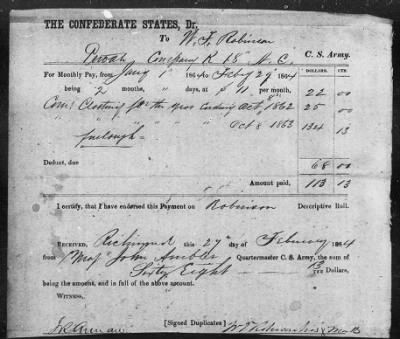 THE CONFEDERATE STATES, Dr.
To W. F. Robinson
Private Company K 18 N. C. C. S. Army.
For Monthly Pay, from Jany 1st 1864 to Feby 29 1864 DOLLARS. CTS.
being 2 months, " days, at $ 11 per month, 22 00
Com Clothing for the year ending Oct 8, 1862 25 00
" " " " Oct 8 1863 134 13
furlough
Deduct, due 68 00
Amount paid, 113 13
I certify, that I have endorsed this Payment on Robinson Descriptive Roll.
RECEIVED, Richmond this 29 day of February 1864
from Maj John Ambler Quartermaster C. S. Army, the sum of
Sixty Eight 13/100 Dollars,
being the amount, and in full of the above account.
WITNESS,
[Signed Duplicates]